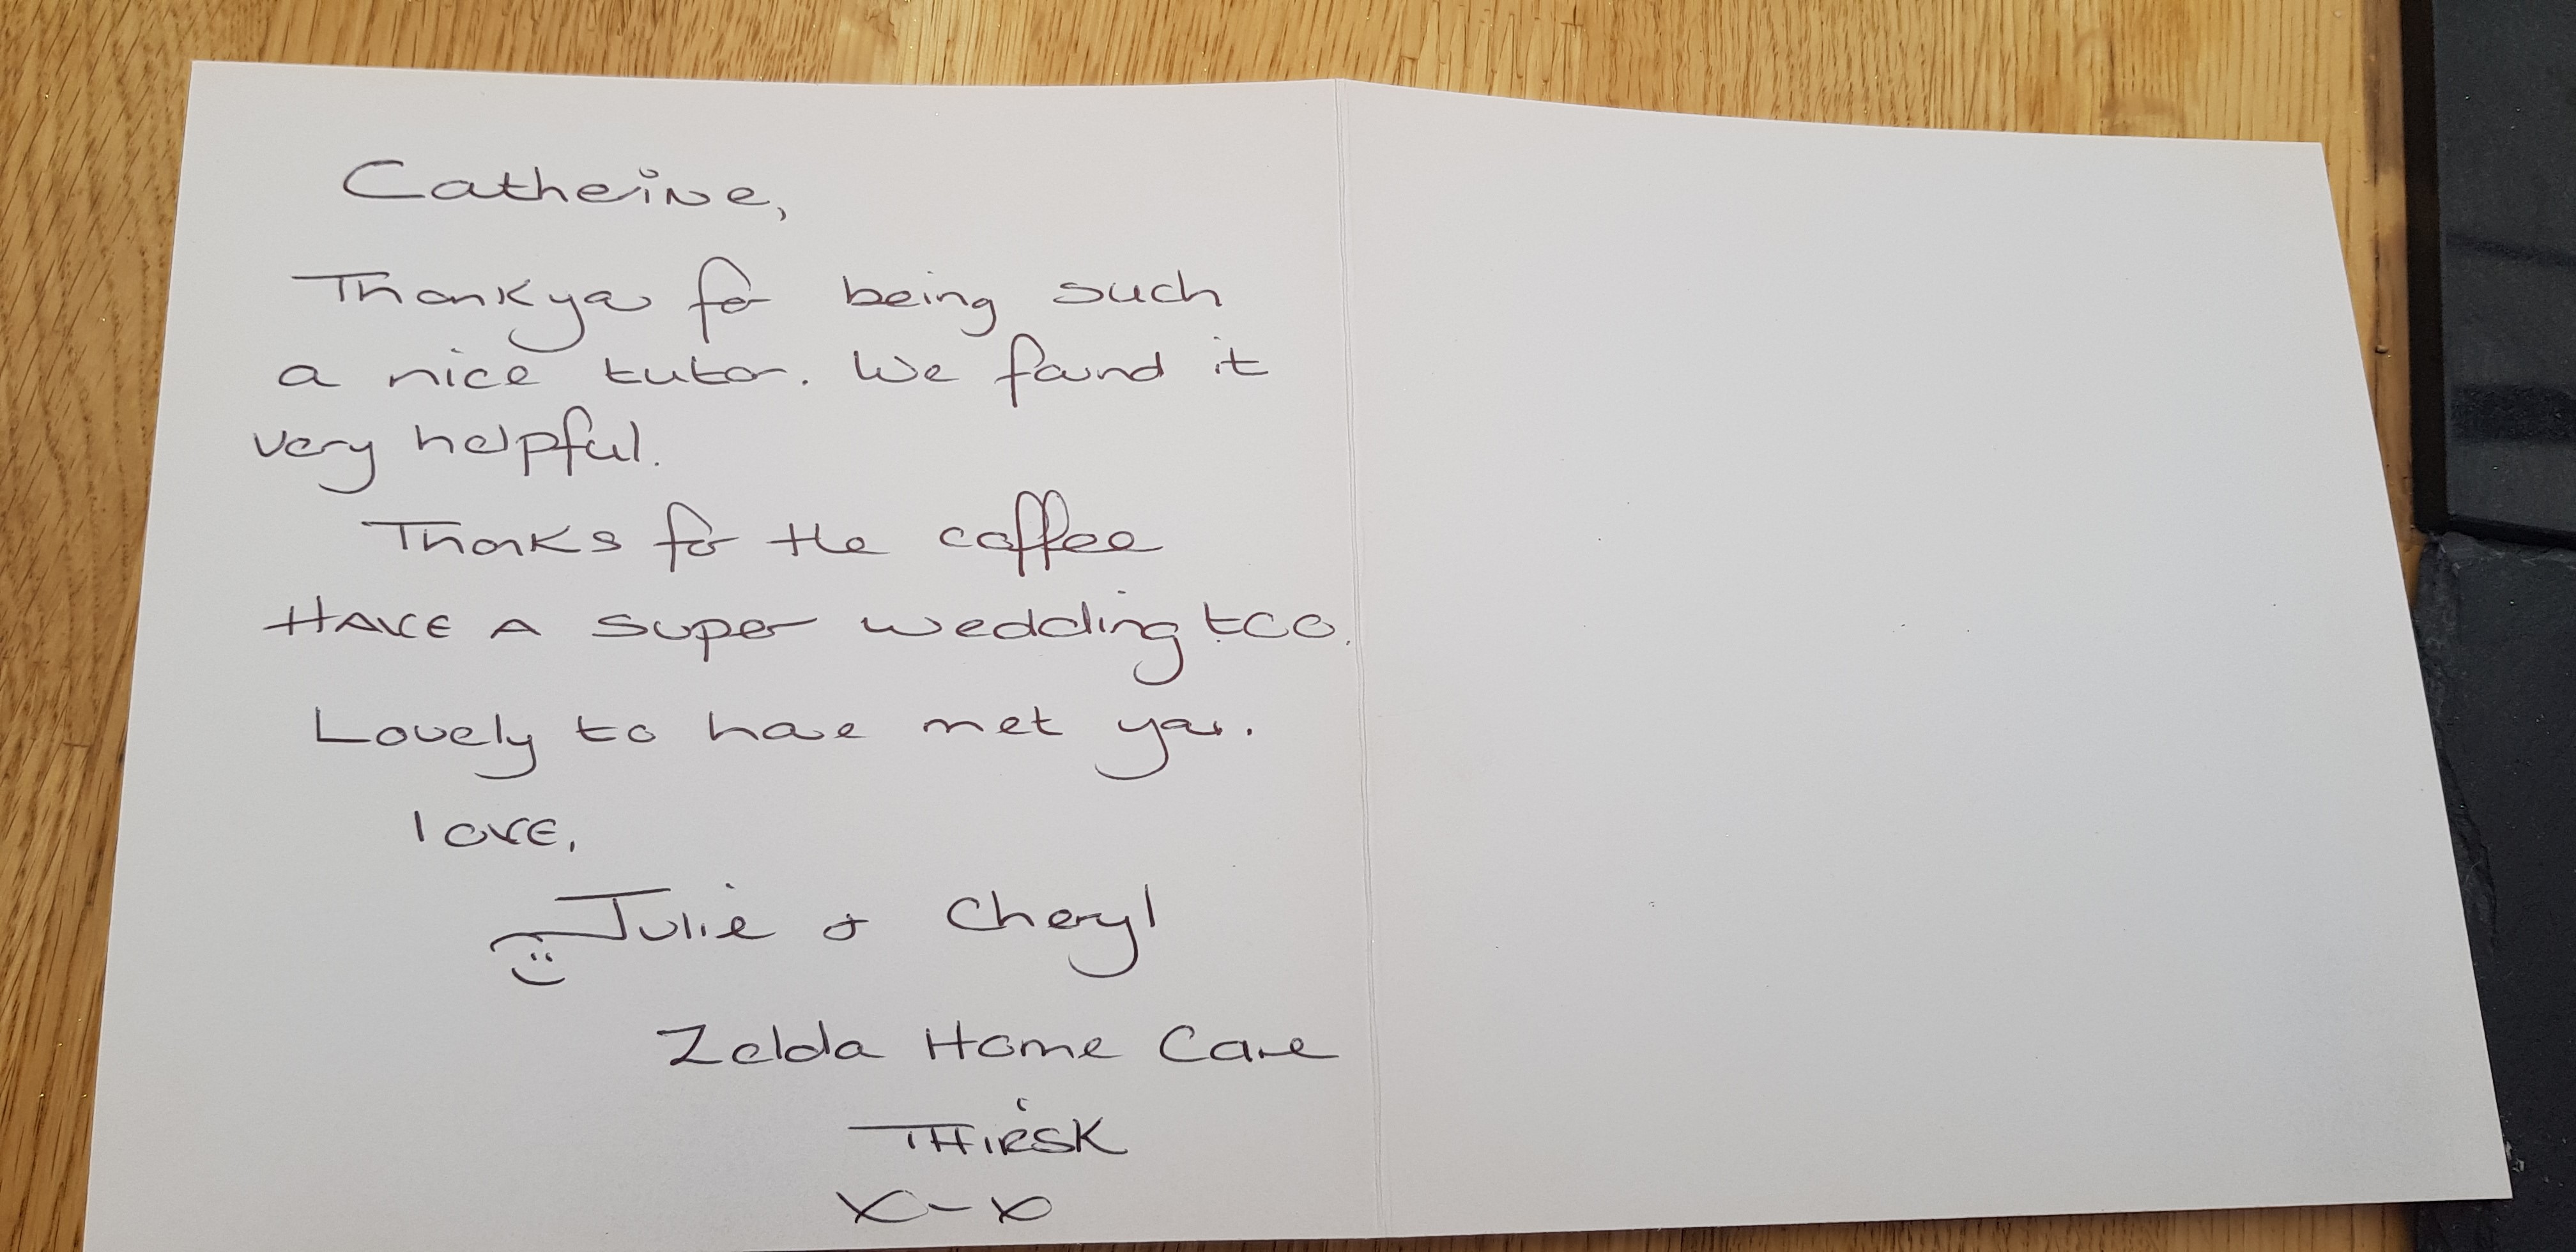 Catherine,
Thankyou for being such
a nice tutor. We found it
very helpful.
Thanks for the coffee
HAVE A super wedding too.
Lovely to have met you.
love,
Julie & Cheryl
Zelda Home Care
THIRSK
x-x